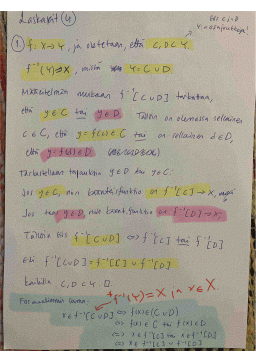 Laskarit (4)
eli C ja D
Y:n osajoukkoja!
1. f: X → Y, ja oletetaan, että C, D ⊂ Y.
f⁻¹(Y) = X, missä Y = C ∪ D
Määritelmän mukaan f⁻¹[C ∪ D] tarkoittaa,
että y ∈ C tai y ∈ D. Tällöin on olemassa sellainen
c ∈ C, että y = f(c) ∈ C tai on sellainen d ∈ D,
että y = f(d) ∈ D.
Tarkastellaan tapauksia y ∈ D tai y ∈ C.
Jos y ∈ C, niin käänteisfunktio on f⁻¹[C] → X,
Jos taas y ∈ D, niin käänteisfunktio on f⁻¹[D] → X.
Tällöin siis f⁻¹[C ∪ D] ⇔ f⁻¹[C] tai f⁻¹[D]
eli f⁻¹[C ∪ D] = f⁻¹[C] ∪ f⁻¹[D]
kaikilla C, D ⊂ Y. □
f⁻¹(Y) = X, ja x ∈ X
x ∈ f⁻¹[C ∪ D] ⇔ f(x) ∈ (C ∪ D)
⇔ f(x) ∈ C tai f(x) ∈ D
⇔ x ∈ f⁻¹[C] tai x ∈ f⁻¹[D]
⇔ x ∈ f⁻¹[C] ∪ f⁻¹[D]